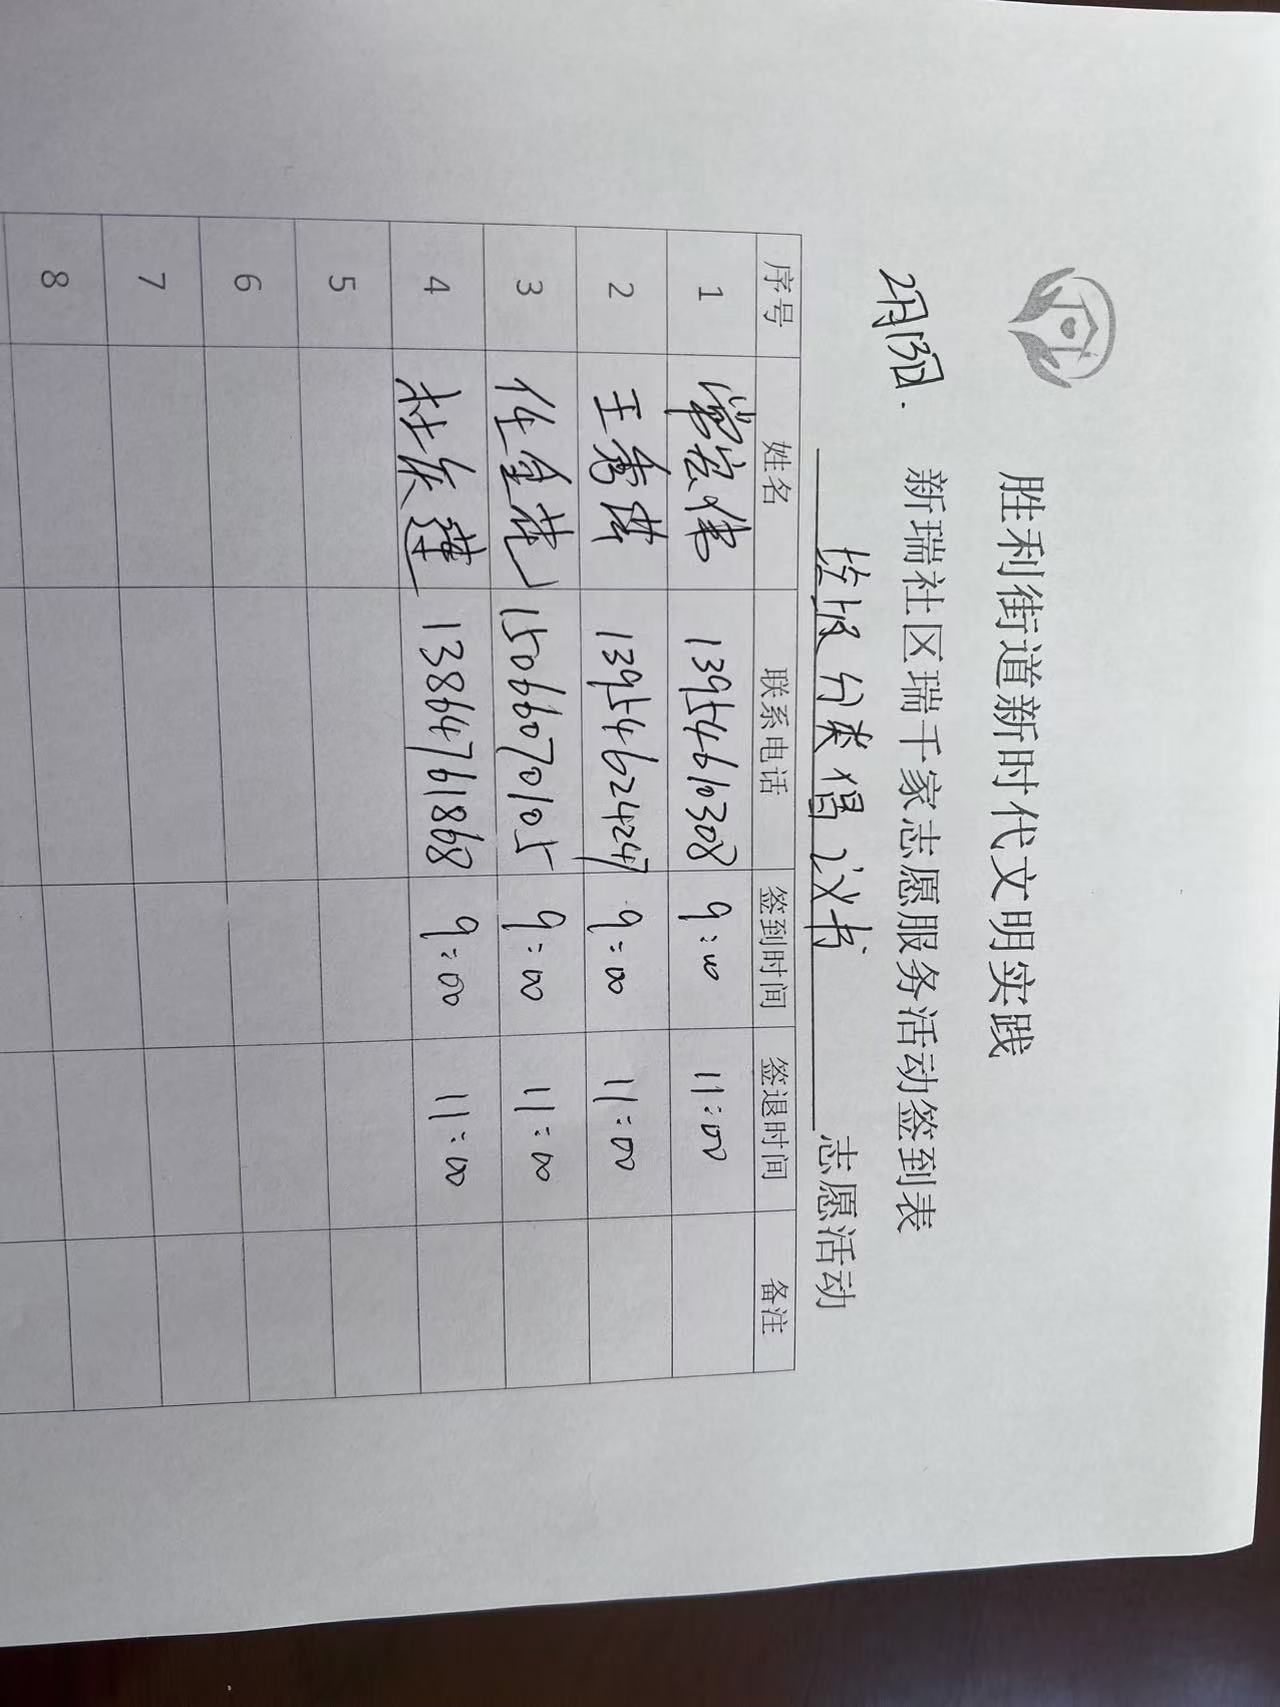 胜利街道新时代文明实践
新瑞社区瑞千家志愿服务活动签到表
2月13日.
垃圾分类倡议书 志愿活动
序号 姓名 联系电话 签到时间 签退时间 备注
1 常宏伟 13954610308 9:00 11:00
2 王秀洪 13954624247 9:00 11:00
3 任金花 15066070105 9:00 11:00
4 杜庆莲 13864761868 9:00 11:00
5
6
7
8